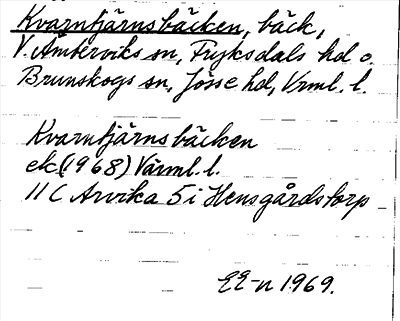 Kvarntjärnsbäcken, bäck,
V. Ämterviks sn, Fryksdals hd o.
Brunskogs sn, Jösse hd, Vrml. l.
Kvarntjärnsbäcken
ek (1968) Värml. l.
11 C Arvika 5 i Hensgårdstorp
EE-n 1969.